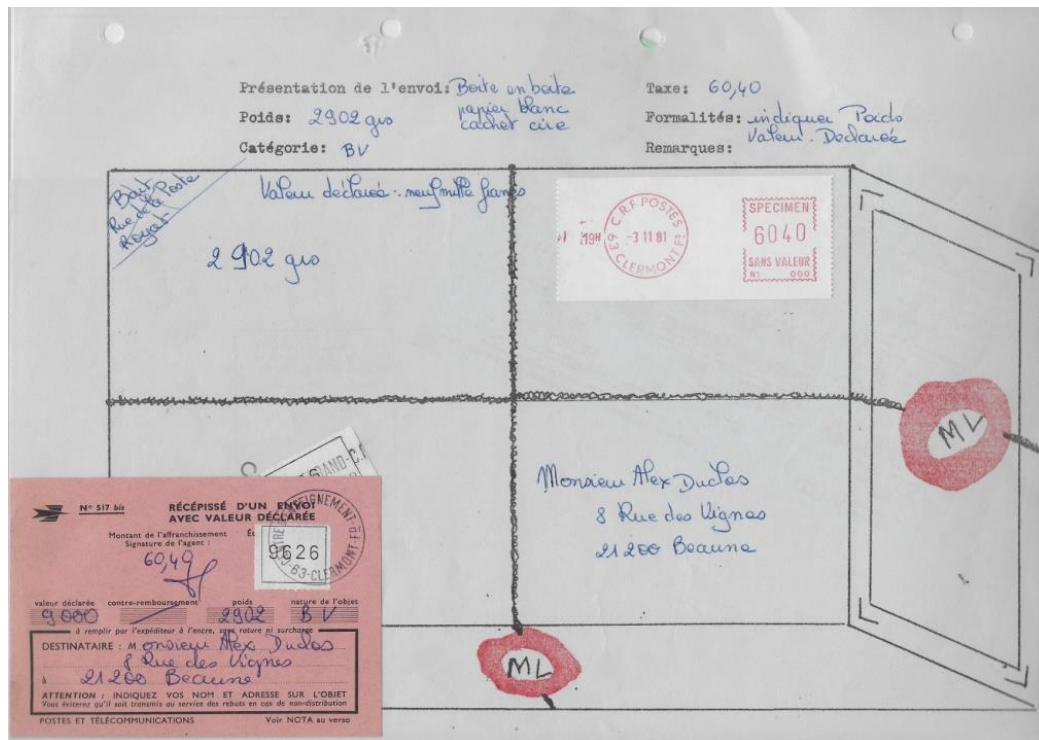 Présentation de l'envoi: Boite en boite
papier blanc
cachet cire
Poids: 2902 grs
Catégorie: BV
Taxe: 60,40
Formalités: indiquer Poids
Valeur. Declarée
Remarques:
Rue de la Poste
Royat
Valeur déclarée: neuf mille francs
2902 grs
C.R.F. POSTES
19H -3 11 81
63 CLERMONT FD
SPECIMEN
6040
SANS VALEUR
N1 000
ML
Monsieur Alex Duclos
8 Rue des Vignes
21200 Beaune
ML
N° 517 bis
RÉCÉPISSÉ D'UN ENVOI
AVEC VALEUR DÉCLARÉE
Montant de l'affranchissement
Signature de l'agent :
60,40
9626
63-CLERMONT-FD
valeur déclarée contre-remboursement poids nature de l'objet
9000 2902 BV
à remplir par l'expéditeur à l'encre, sans rature ni surcharge
DESTINATAIRE : Monsieur Alex Duclos
8 Rue des Vignes
à 21200 Beaune
ATTENTION : INDIQUEZ VOS NOM ET ADRESSE SUR L'OBJET
Vous éviterez qu'il soit transmis au service des rebuts en cas de non-distribution
POSTES ET TÉLÉCOMMUNICATIONS Voir NOTA au verso